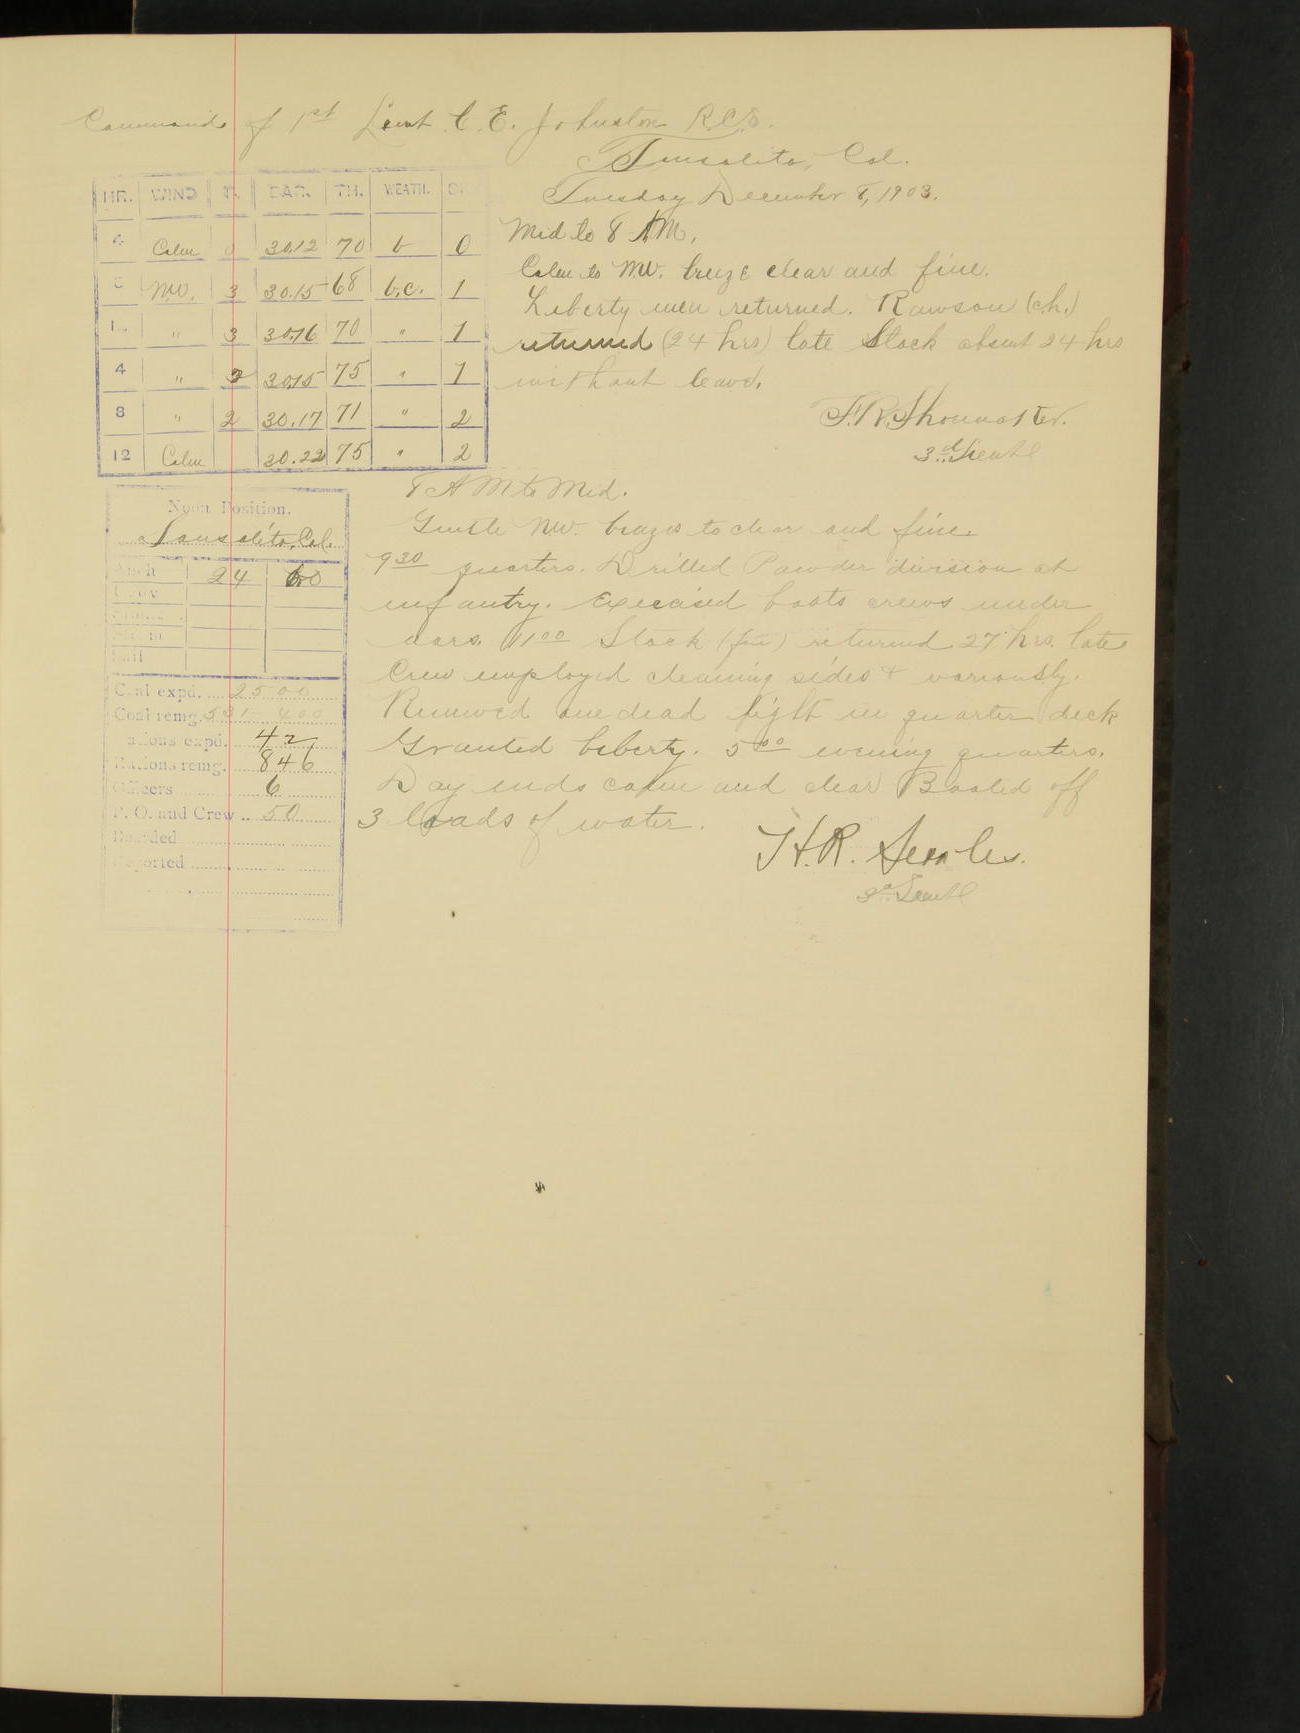 Command of 1st Lieut C. E. Johnston R.C.S.
Sausalito, Cal.
Tuesday December 8, 1903.
HR. WIND F. BAR. TH. WEATH.
4 Calm 0 30.12 70 b 0
8 NW. 3 30.15 68 b.c. 1
12 " 3 30.16 70 " 1
4 " 2 30.15 75 " 1
8 " 2 30.17 71 " 2
12 Calm 30.22 75 " 2
Mid to 8 AM.
Calm to NW. breeze clear and fine.
Liberty men returned. Rawson (ch.)
returned (24 hrs) late Stock absent 24 hrs
without leave.
3d Lieut
Noon Position.
Sausalito, Cal.
24 60
Coal expd. 2500
Coal remg.
Rations expd. 42
Rations remg. 846
Officers 6
P. O. and Crew 50
Boarded
Reported
8 AM to Mid.
Gentle NW. brezes to clear and fine.
9 30 quarters. Drilled Powder division at
infantry. Exercised boats crews under
oars. 11 00 Stock returned 27 hrs. late
Crew employed cleaning sides & variously.
Removed one dead light in quarter deck
Granted liberty. 5 00 evening quarters.
Day ends calm and clear Boated off
3 loads of water.
H. R. Searles.
3d Lieut